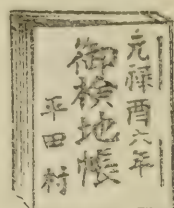 元禄酉六年
御検地帳
平田村